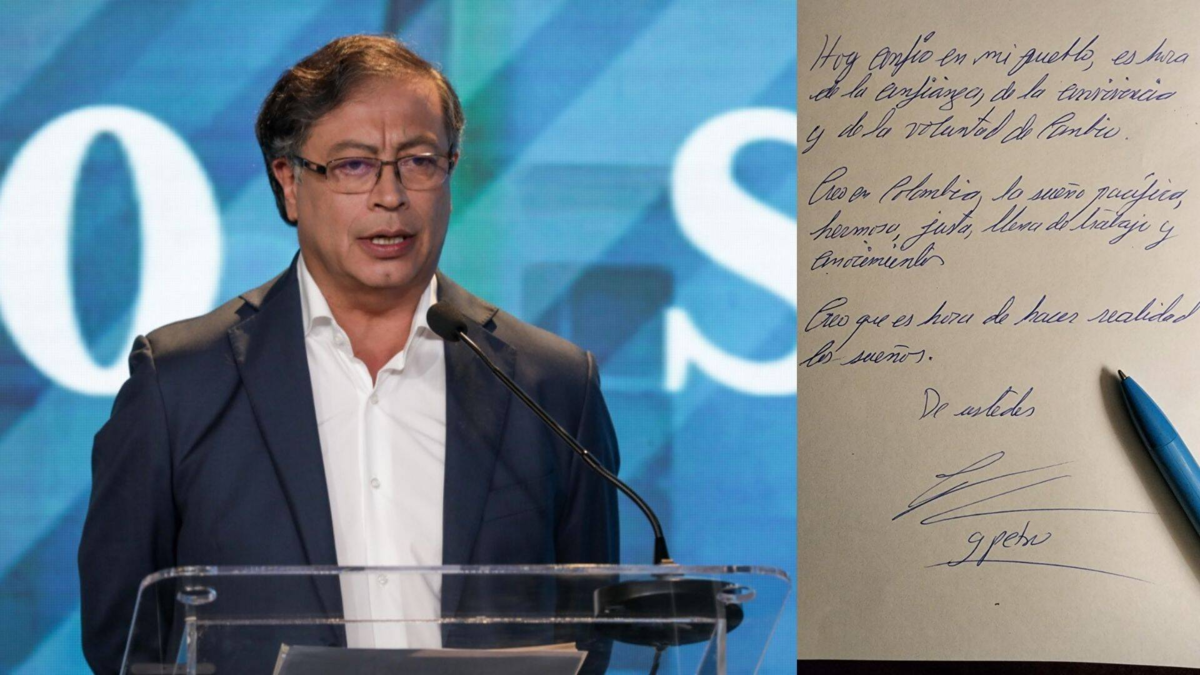 O S
Hoy confío en mi pueblo, es hora
de la confianza, de la convivencia
y de la voluntad de Cambio.
Creo en Colombia, la sueño pacífica,
hermosa, justa, llena de trabajo y
conocimiento
Creo que es hora de hacer realidad
los sueños.
De ustedes
g petro